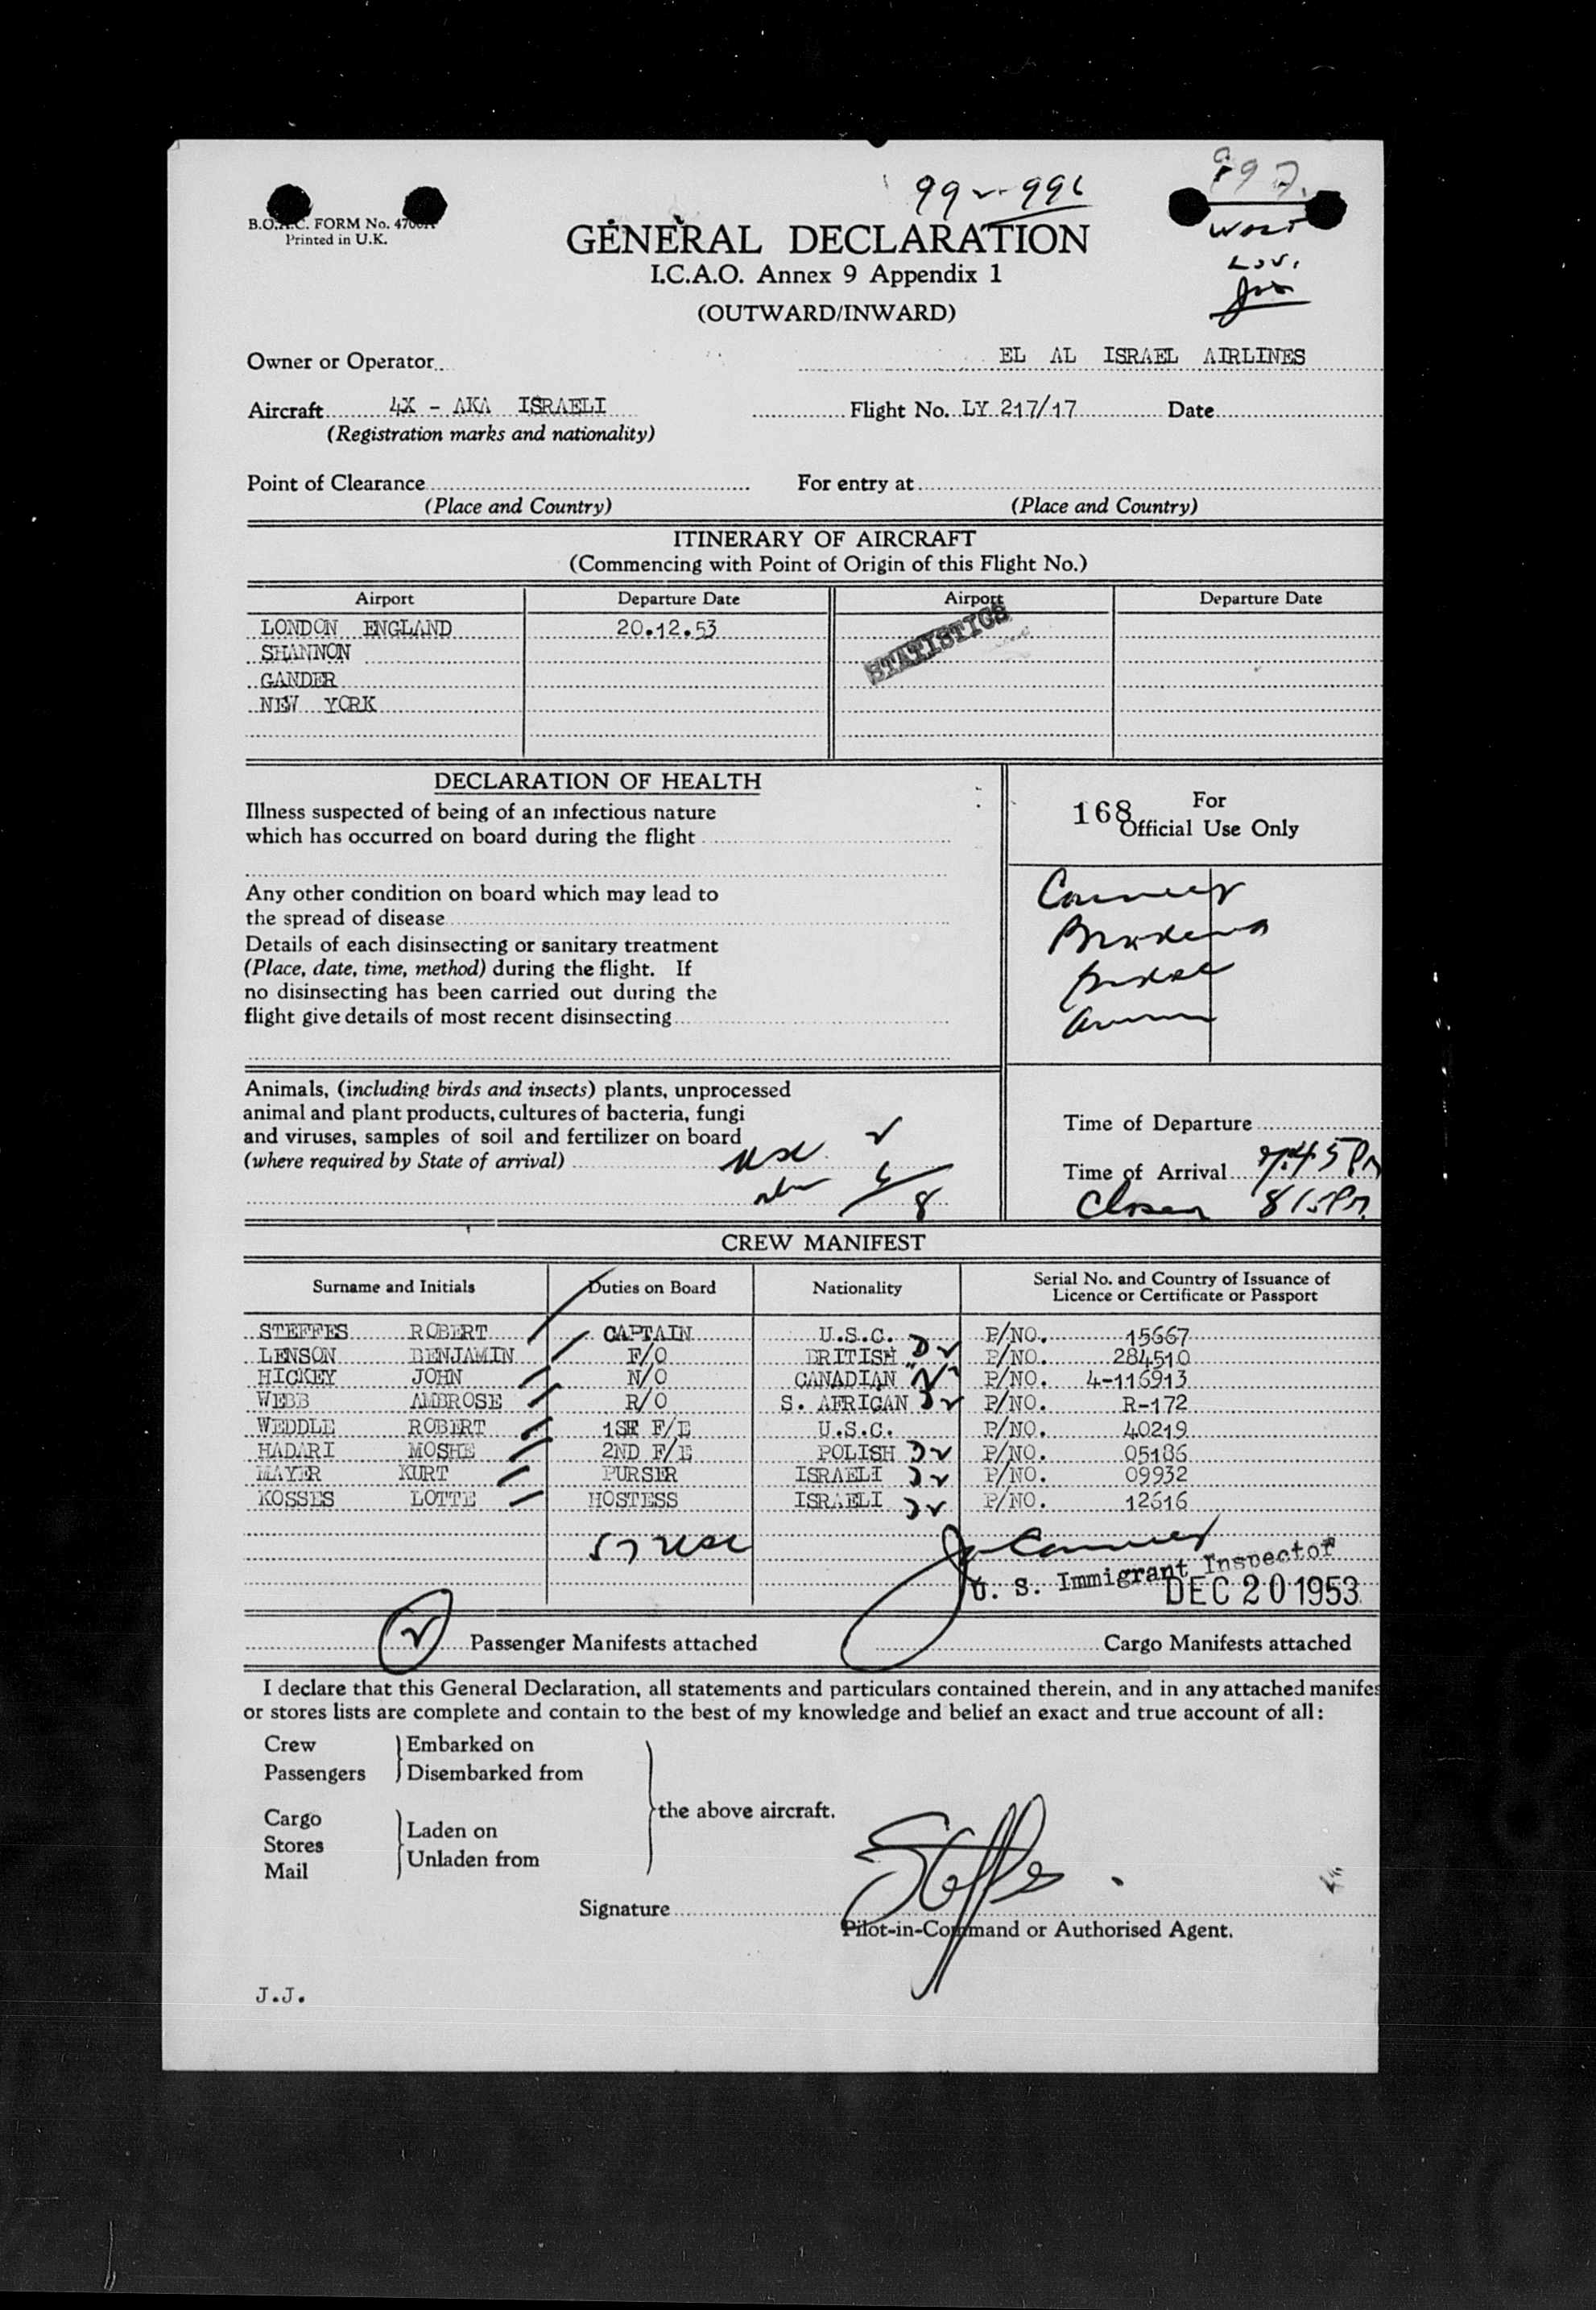 992-996
997
B.O.A.C. FORM No.
Printed in U.K.
GENERAL DECLARATION
I.C.A.O. Annex 9 Appendix 1
(OUTWARD/INWARD)
Owner or Operator EL AL ISRAEL AIRLINES
Aircraft 4X - AKA ISRAELI Flight No. LY 217/17 Date
(Registration marks and nationality)
Point of Clearance For entry at
(Place and Country) (Place and Country)
ITINERARY OF AIRCRAFT
(Commencing with Point of Origin of this Flight No.)
Airport Departure Date Airport Departure Date
LONDON ENGLAND 20.12.53
STATISTICS
SHANNON
GANDER
NEW YORK
DECLARATION OF HEALTH
Illness suspected of being of an infectious nature
which has occurred on board during the flight
168 For
Official Use Only
Any other condition on board which may lead to
the spread of disease
Details of each disinsecting or sanitary treatment
(Place, date, time, method) during the flight. If
no disinsecting has been carried out during the
flight give details of most recent disinsecting
Animals, (including birds and insects) plants, unprocessed
animal and plant products, cultures of bacteria, fungi
and viruses, samples of soil and fertilizer on board
(where required by State of arrival)
usc 2
6
8
Time of Departure
Time of Arrival 7:45 PM
Closed 815PM
CREW MANIFEST
Surname and Initials Duties on Board Nationality Serial No. and Country of Issuance of
Licence or Certificate or Passport
STEFFES ROBERT CAPTAIN U.S.C. P/NO. 15667
LENSON BENJAMIN F/O BRITISH P/NO. 284510
HICKEY JOHN N/O CANADIAN P/NO. 4-116913
WEBB AMBROSE R/O S. AFRICAN P/NO. R-172
WEDDLE ROBERT 1ST F/E U.S.C. P/NO. 40219
HADARI MOSHE 2ND F/E POLISH P/NO. 05186
MAYER KURT PURSER ISRAELI P/NO. 09932
KOSSES LOTTE HOSTESS ISRAELI P/NO. 12616
U. S. Immigrant Inspector
DEC 20 1953
2 Passenger Manifests attached Cargo Manifests attached
I declare that this General Declaration, all statements and particulars contained therein, and in any attached manifes
or stores lists are complete and contain to the best of my knowledge and belief an exact and true account of all:
Crew Embarked on
Passengers Disembarked from
the above aircraft.
Cargo
Stores Laden on
Mail Unladen from
Signature Steffes
Pilot-in-Command or Authorised Agent.
J.J.